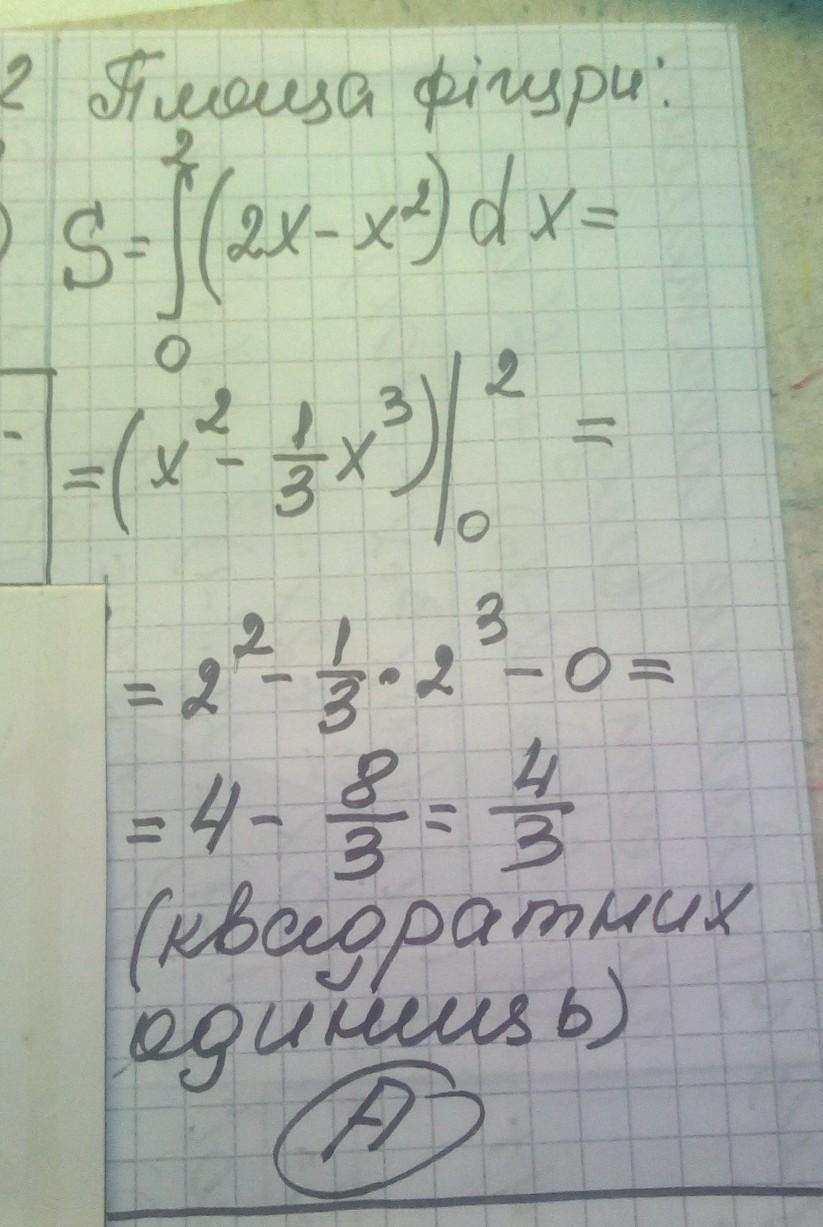 2 Площа фігури:
S = ∫₀² (2x - x²) dx =
= (x² - 1/3 x³) |₀² =
= 2² - 1/3 · 2³ - 0 =
= 4 - 8/3 = 4/3
(квадратних
одиниць)
А